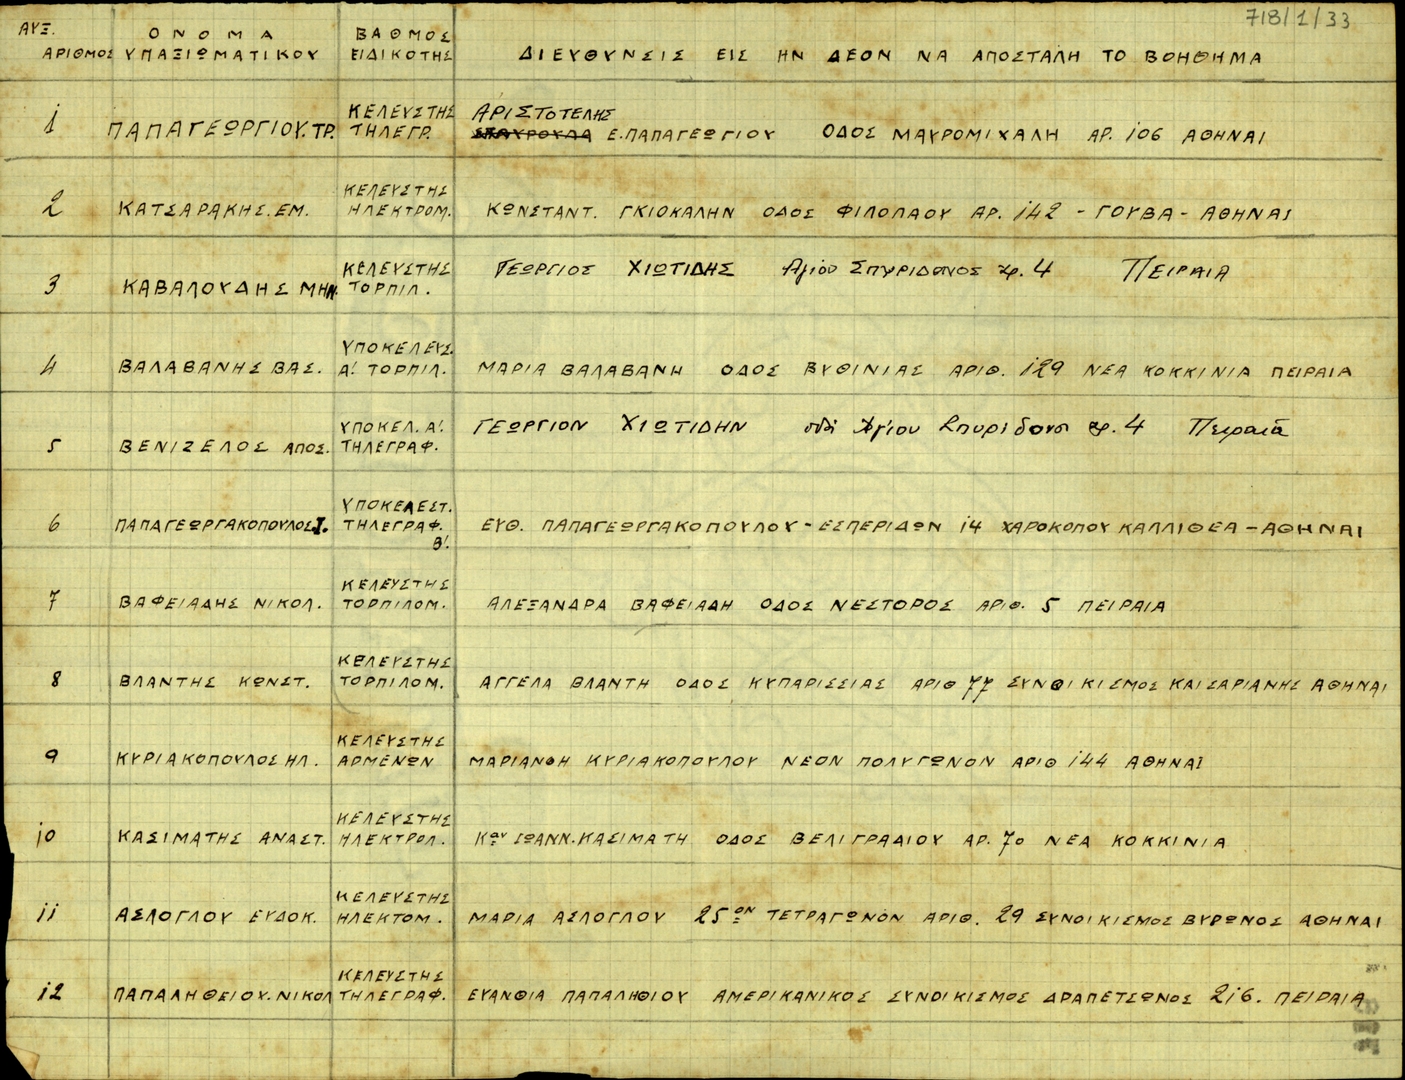 718/1/33
ΑΥΞ. ΑΡΙΘΜΟΣ
ΟΝΟΜΑ ΥΠΑΞΙΩΜΑΤΙΚΟΥ
ΒΑΘΜΟΣ ΕΙΔΙΚΟΤΗΣ
ΔΙΕΥΘΥΝΣΙΣ ΕΙΣ ΗΝ ΔΕΟΝ ΝΑ ΑΠΟΣΤΑΛΗ ΤΟ ΒΟΗΘΗΜΑ
1 ΠΑΠΑΓΕΩΡΓΙΟΥ.ΤΡ. ΚΕΛΕΥΣΤΗΣ ΤΗΛΕΓΡ. ΑΡΙΣΤΟΤΕΛΗΣ
ΣΤΑΥΡΟΥΛΑ Ε.ΠΑΠΑΓΕΩΓΙΟΥ ΟΔΟΣ ΜΑΥΡΟΜΙΧΑΛΗ ΑΡ. 106 ΑΘΗΝΑΙ
2 ΚΑΤΣΑΡΑΚΗΣ. ΕΜ. ΚΕΛΕΥΣΤΗΣ ΗΛΕΚΤΡΟΜ. ΚΩΝΣΤΑΝΤ. ΓΚΙΟΚΑΛΗΝ ΟΔΟΣ ΦΙΛΟΠΑΟΥ ΑΡ. 142 - ΓΟΥΒΑ - ΑΘΗΝΑΙ
3 ΚΑΒΑΛΟΥΔΗΣ ΜΗΝ. ΚΕΛΕΥΣΤΗΣ ΤΟΡΠΙΛ. ΓΕΩΡΓΙΟΣ ΧΙΩΤΙΔΗΣ Αγίου Σπυρίδωνος αρ. 4 ΠΕΙΡΑΙΑ
4 ΒΑΛΑΒΑΝΗΣ ΒΑΣ. ΥΠΟΚΕΛΕΥΣ. Α'. ΤΟΡΠΙΛ. ΜΑΡΙΑ ΒΑΛΑΒΑΝΗ ΟΔΟΣ ΒΥΘΙΝΙΑΣ ΑΡΙΘ. 129 ΝΕΑ ΚΟΚΚΙΝΙΑ ΠΕΙΡΑΙΑ
5 ΒΕΝΙΖΕΛΟΣ ΑΠΟΣ. ΥΠΟΚΕΛ. Α'. ΤΗΛΕΓΡΑΦ. ΓΕΩΡΓΙΟΝ ΧΙΩΤΙΔΗΝ οδός Αγίου Σπυρίδωνος αρ. 4 Πειραιά
6 ΠΑΠΑΓΕΩΡΓΑΚΟΠΟΥΛΟΣ Ι. ΥΠΟΚΕΛΕΣΤ. ΤΗΛΕΓΡΑΦ. Β'. ΕΥΘ. ΠΑΠΑΓΕΩΡΓΑΚΟΠΟΥΛΟΥ - ΕΣΠΕΡΙΔΩΝ 14 ΧΑΡΟΚΟΠΟΥ ΚΑΛΛΙΘΕΑ - ΑΘΗΝΑΙ
7 ΒΑΦΕΙΑΔΗΣ ΝΙΚΟΛ. ΚΕΛΕΥΣΤΗΣ ΤΟΡΠΙΛΟΜ. ΑΛΕΞΑΝΔΡΑ ΒΑΦΕΙΑΔΗ ΟΔΟΣ ΝΕΣΤΟΡΟΣ ΑΡΙΘ. 5 ΠΕΙΡΑΙΑ
8 ΒΛΑΝΤΗΣ ΚΩΝΣΤ. ΚΕΛΕΥΣΤΗΣ ΤΟΡΠΙΛΟΜ. ΑΓΓΕΛΑ ΒΛΑΝΤΗ ΟΔΟΣ ΚΥΠΑΡΙΣΣΙΑΣ ΑΡΙΘ 77 ΣΥΝΟΙΚΙΣΜΟΣ ΚΑΙΣΑΡΙΑΝΗΣ ΑΘΗΝΑΙ
9 ΚΥΡΙΑΚΟΠΟΥΛΟΣ ΗΛ. ΚΕΛΕΥΣΤΗΣ ΑΡΜΕΝΩΝ ΜΑΡΙΑΝΘΗ ΚΥΡΙΑΚΟΠΟΥΛΟΥ ΝΕΟΝ ΠΟΛΥΓΩΝΟΝ ΑΡΙΘ 144 ΑΘΗΝΑΙ
10 ΚΑΣΙΜΑΤΗΣ ΑΝΑΣΤ. ΚΕΛΕΥΣΤΗΣ ΗΛΕΚΤΡΟΛ. Κον ΙΩΑΝΝ. ΚΑΣΙΜΑΤΗ ΟΔΟΣ ΒΕΛΙΓΡΑΔΙΟΥ ΑΡ. 70 ΝΕΑ ΚΟΚΚΙΝΙΑ
11 ΑΣΛΟΓΛΟΥ ΕΥΔΟΚ. ΚΕΛΕΥΣΤΗΣ ΗΛΕΚΤΟΜ. ΜΑΡΙΑ ΑΣΛΟΓΛΟΥ 25ον ΤΕΤΡΑΓΩΝΟΝ ΑΡΙΘ. 29 ΣΥΝΟΙΚΙΣΜΟΣ ΒΥΡΩΝΟΣ ΑΘΗΝΑΙ
12 ΠΑΠΑΛΗΘΕΙΟΥ.ΝΙΚΟΛ ΚΕΛΕΥΣΤΗΣ ΤΗΛΕΓΡΑΦ. ΕΥΑΝΘΙΑ ΠΑΠΑΛΗΘΙΟΥ ΑΜΕΡΙΚΑΝΙΚΟΣ ΣΥΝΟΙΚΙΣΜΟΣ ΔΡΑΠΕΤΣΩΝΟΣ 216. ΠΕΙΡΑΙΑ